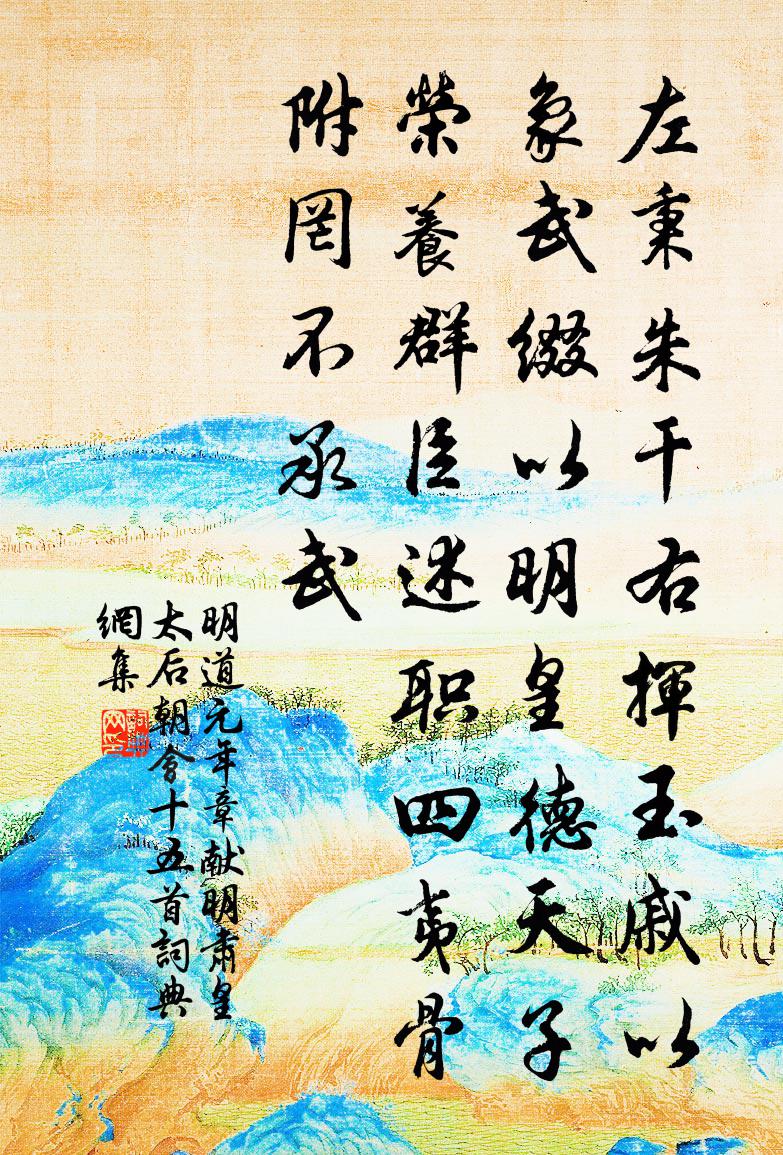 左秉朱干右揮玉戚以
象武缀以明皇德天子
榮養群臣述职四夷骨
附罔不承武
明道元年章献明肃皇
太后朝會十五首詞典
網集